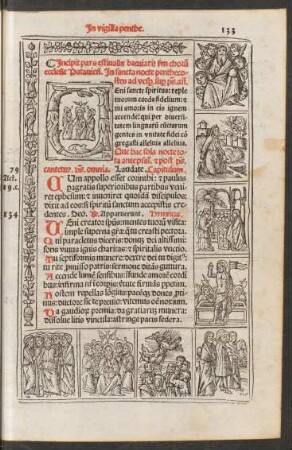 In vigilia penthe.
133
Incipit pars estiualis breuiarij scḋm chorũ
ecclesie Patauieñ. In sancta nocte penthecos-
tes ad vesꝑ. sup ps. añ.
Eni sancte spiritus: reple
tuorum corda fidelium: et
tui amoris in eis ignem
accende: qui per diuersi-
tatem linguarũ cũctarum
gentes in vnitate fidei cõ
gregasti alleluia alleluia.
79
cantetur ps. omnia. Laudate. Capitulum.
Act.
CUm appollo esset corinthi: et paulus
19.c.
peragratis superioribus partibus veni-
ret ephesum: et inueniret quosdã discipulos:
dixit ad eos si spiritũ sanctum accepistis cre-
134
dentes. Deo. R. Apparuerunt. Hymnus.
VEni creator spũs: mentes tuorũ visita:
imple superna grã: que tu creasti pectora.
Qui paracletus diceris: donũ dei altissimi:
fons viuus ignis charitas: et spiritalis vnctio.
Tu septiformis munere: dextre dei tu digitꝰ:
tu rite ꝓmissum patris: sermone ditãs guttura.
Accende lumẽ sensibus: infunde amorẽ cordi-
bus: infirma nr̃i corporis: virtute firmãs ꝑpetim.
Hostem repellas lõgius: pacẽqꝫ dones pro-
tinus: ductore sic te preuio: vitemus oẽ noxium.
Da gaudiorũ premia: da gratiarũ munera:
dissolue litis vincula: astringe pacis federa.